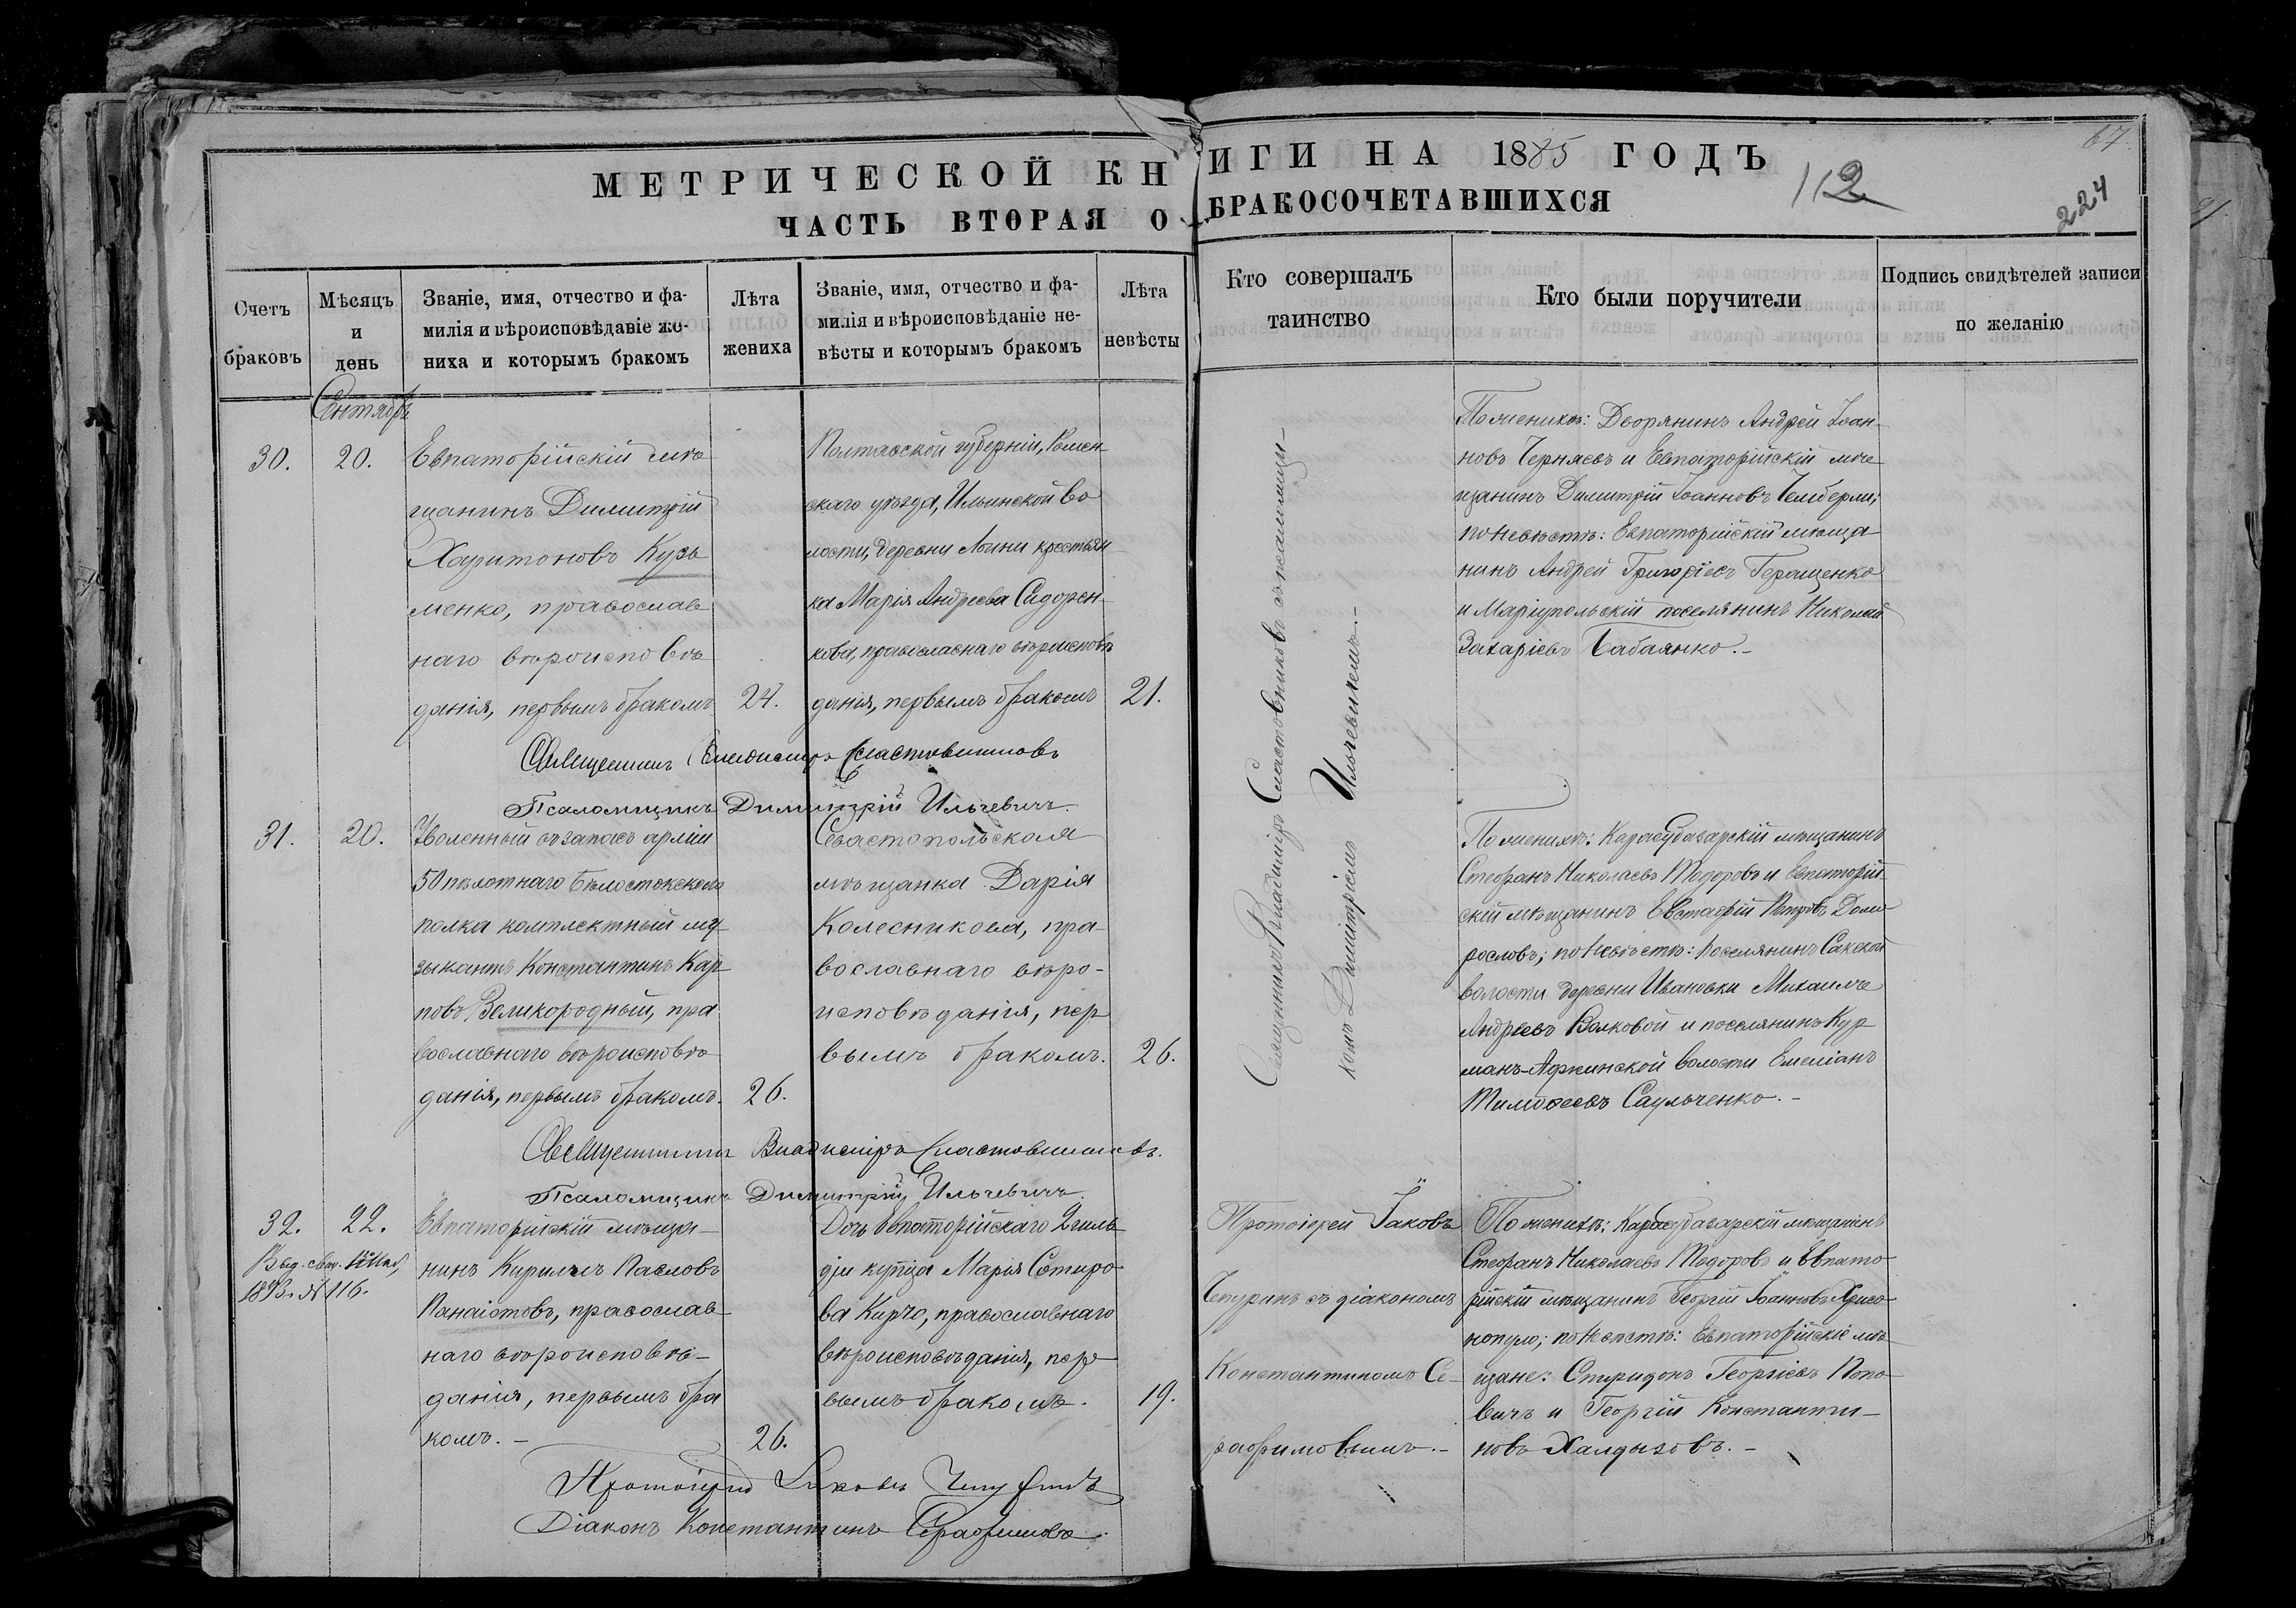 МЕТРИЧЕСКОЙ КНИГИ НА 1885 ГОДЪ
ЧАСТЬ ВТОРАЯ О БРАКОСОЧЕТАВШИХСЯ
67.
112
224
Счетъ браковъ
Мѣсяцъ и день
Званіе, имя, отчество и фа-
милія и вѣроисповѣданіе же-
ниха и которымъ бракомъ
Лѣта жениха
Званіе, имя, отчество и фа-
милія и вѣроисповѣданіе не-
вѣсты и которымъ бракомъ
Лѣта невѣсты
Кто совершалъ таинство
Кто были поручители
Подпись свидѣтелей записи
по желанію
Сентябрь
30.
20.
Евпаторійскій мѣ
щанинъ Димитрій
Харитоновъ Кузь
менко, православ
наго вѣроисповѣ
данія, первымъ бракомъ
24.
Полтавской губерніи, Ромен-
скаго уѣзда, Ильинской во
лости, деревни крестьян
ка Марія Андреева Сидорен-
кова, православнаго вѣроисповѣ
данія, первымъ бракомъ
21.
Священникъ Владиміръ Сластовниковъ съ псаломщи-
комъ Димитріемъ Ильчевичемъ.-
По женихѣ: Дворянинъ Андрей Іоан-
новъ Черняевъ и Евпаторійскій мѣ
щанинъ Димитрій Іоанновъ Челберли;
по невѣстѣ: Евпаторійскій мѣща
нинъ Андрей Григоріевъ Геращенко
и Маріупольскій поселянинъ Николай
Захаріевъ Бабаянко.-
Священникъ Владиміръ Сластовниковъ
Псаломщикъ Димитрій Ильчевичъ.
31.
20.
Уволенный въ запасъ арміи
50 пѣхотнаго Бѣлостокскаго
полка комплектный му
зыкантъ Константинъ Кар
повъ Великородный, пра
вославнаго вѣроисповѣ
данія, первымъ бракомъ.
26.
Севастопольская
мѣщанка Дарія
Колесникова, пра-
вославнаго вѣро-
исповѣданія, пер
вымъ бракомъ.
26.
По женихѣ: Карасубазарскій мѣщанинъ
Стефанъ Николаевъ Тодоровъ и Евпаторій-
скій мѣщанинъ Евстафій Петровъ Домо
рословъ; по невѣстѣ: поселянинъ Сакской
волости деревни Ивановки Михаилъ
Андреевъ Волковой и поселянинъ Кур
манъ-Аджинской волости Емеліанъ
Тимоѳеевъ Саульченко.-
Священникъ Владиміръ Сластовниковъ.
Псаломщикъ Димитрій Ильчевичъ.
32.
22.
Выд. свид.
1895. № 116.
Евпаторійскій мѣща-
нинъ Кириллъ Павловъ
Панаіотовъ, православ
наго вѣроисповѣ-
данія, первымъ бра
комъ.-
26.
Дочь Евпаторійскаго 2 гиль
діи купца Марія Сотиро
ва Кирчо, православнаго
вѣроисповѣданія, пер
вымъ бракомъ.
19.
Протоіерей Іаковъ
Чепуринъ съ діакономъ
Константиномъ Се-
рафимовымъ.-
По женихѣ: Карасубазарскій мѣщанинъ
Стефанъ Николаевъ Тодоровъ и Евпато
рійскій мѣщанинъ Георгій Іоанновъ Хрисо
нопуло; по невѣстѣ: Евпаторійскіе мѣ
щане: Спиридонъ Георгіевъ Попо
вичъ и Георгій Константи-
новъ Халдызовъ.-
Протоіерей Іаковъ Чепуринъ
Діаконъ Константинъ Серафимовъ.